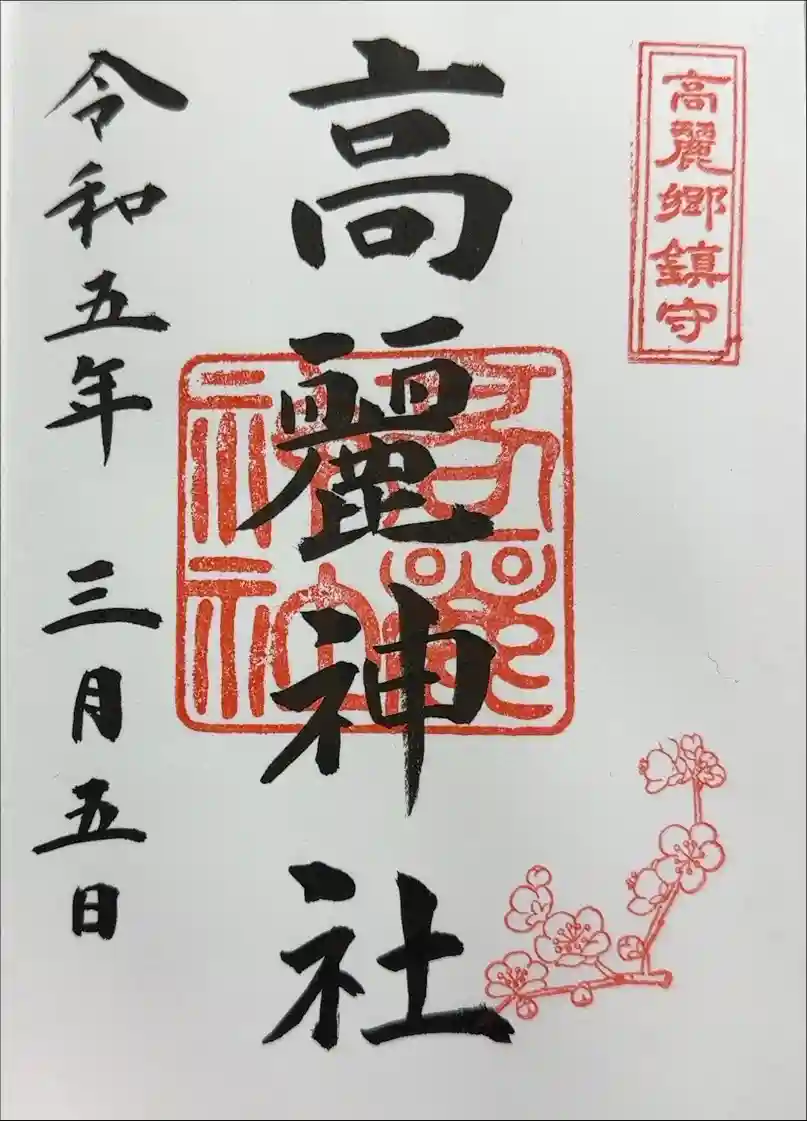 高麗郷鎮守
高麗神社
令和五年 三月五日